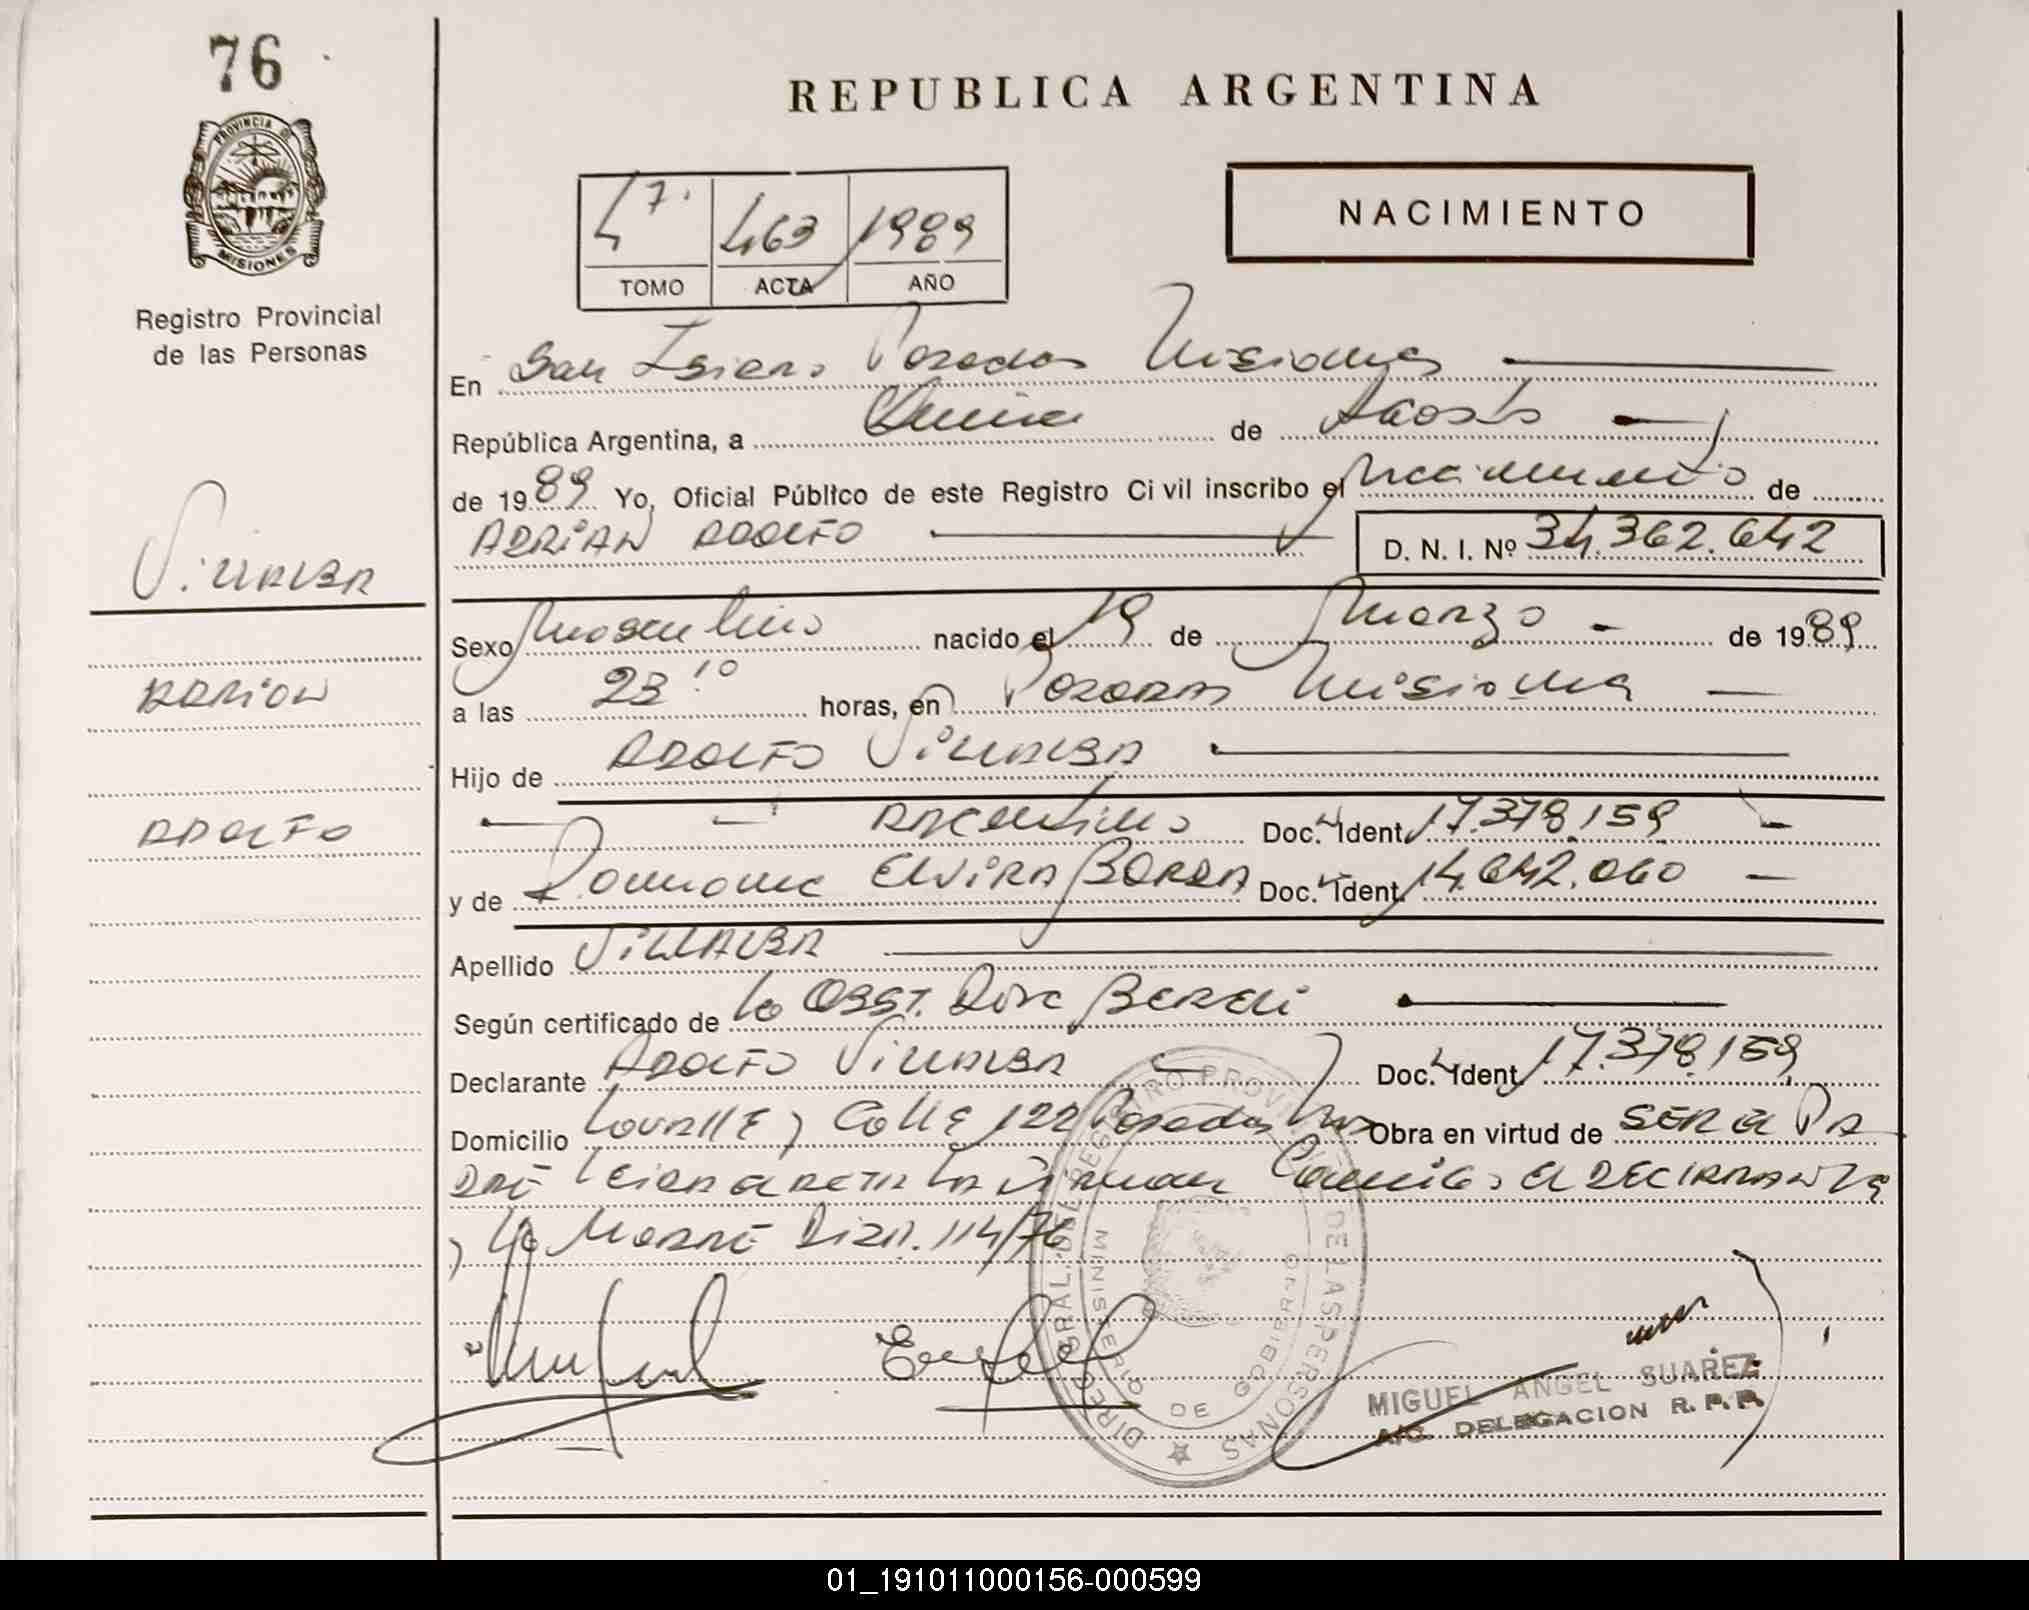 76
REPUBLICA ARGENTINA
PROVINCIA DE
MISIONES
Registro Provincial
de las Personas
NACIMIENTO
463 1989
TOMO ACTA AÑO
En San Isidro Posadas Misiones
República Argentina, a Quince de Agosto
de 1989 Yo, Oficial Público de este Registro Civil inscribo el Nacimiento de
ADRIAN ADOLFO D. N. I. Nº 34.362.642
VILLALBA
ADRIAN
ADOLFO
Sexo Masculino nacido el 19 de Marzo de 1989
a las 23 10 horas, en Posadas Misiones
Hijo de ADOLFO VILLALBA
ARGENTINO Doc. Ident. 17.378.159
y de ELVIRA BORDA Doc. Ident. 14.642.060
Apellido VILLALBA
Según certificado de la OBST. BERELI
Declarante ADOLFO VILLALBA Doc. Ident. 17.378.159
Domicilio LAVALLE y CALLE 122 Posadas Mnes Obra en virtud de SER EL PA
DRE LEIDA EL ACTA LA FIRMAN Conmigo EL DECLARANTE
y la MADRE 114/76
DIREC. GRAL. DEL REGISTRO PROVINCIAL DE LAS PERSONAS
MINISTERIO DE GOBIERNO
MIGUEL ANGEL SUAREZ
A/C. DELEGACION R. P. P.
01_191011000156-000599